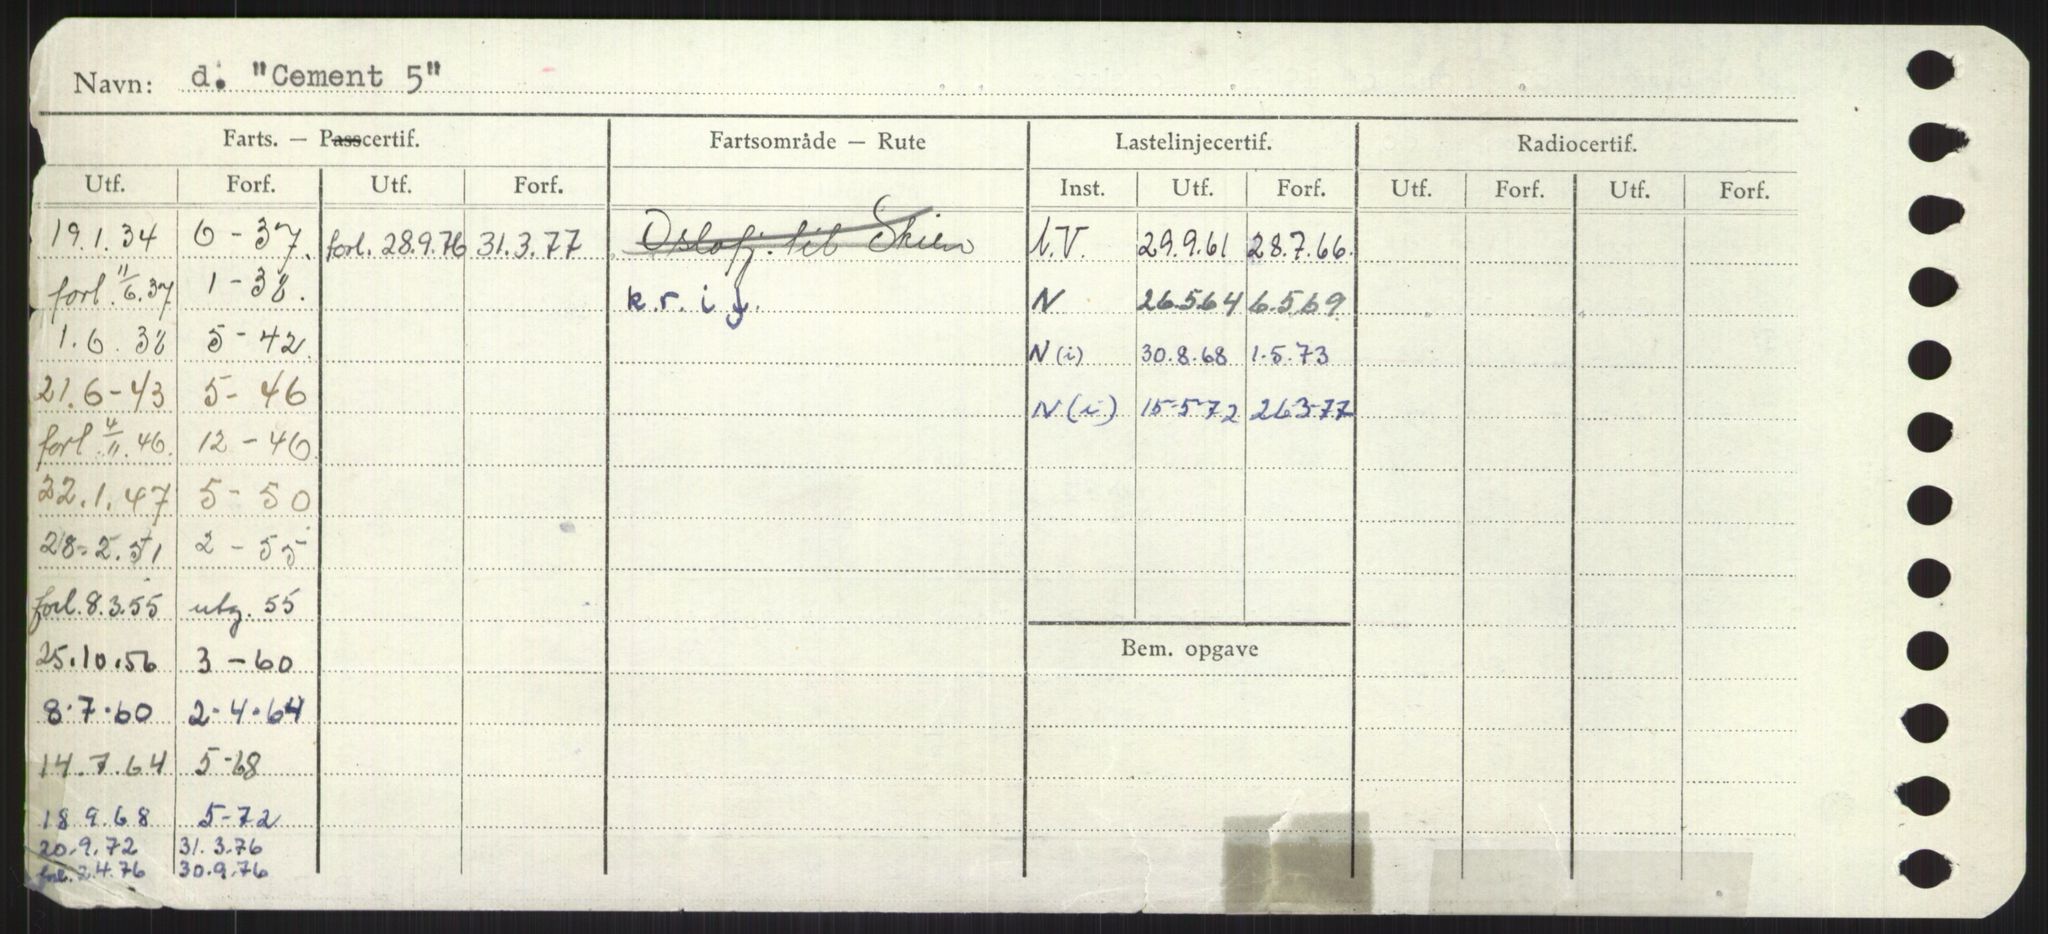 Navn: d. "Cement 5"
Farts. — Passcertif. Fartsområde — Rute Lastelinjecertif. Radiocertif.
Utf. Forf. Utf. Forf. Inst. Utf. Forf. Utf. Forf. Utf. Forf.
19.1.34 6-37. forl. 28.9.76 31.3.77 Oslofj. til Skien N.V. 29.9.61 28.7.66.
forl. 11/6.37 1-38. k.r. i f. N 26.5.64 6.5.69
1.6.38 5-42. N(i) 30.8.68 1.5.73
21.6-43 5-46 N(i) 15-5-72 26.3-77
forl. 4/11.46. 12-46
22.1.47 5-50
28-2.51 2-55
forl. 8.3.55 utg. 55
25.10.56 3-60 Bem. opgave
8.7.60 2.4.64
14.7.64 5-68
18.9.68 5-72
20.9.72 31.3.76
forl. 2.4.76 30.9.76